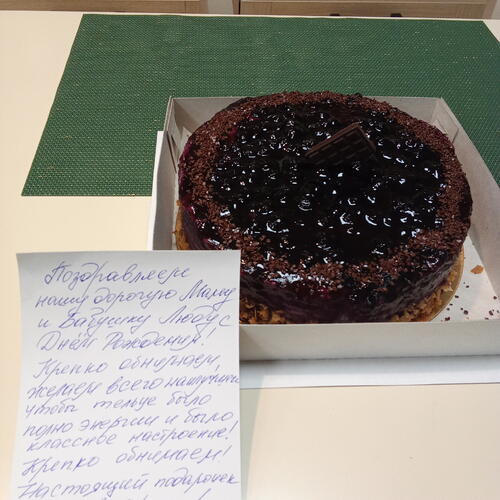 Поздравляем
нашу дорогую Маму
и Бабушку Любу с
Днём Рождения!
Крепко обнимаем,
желаем всего наилучшего
чтобы тельце было
полно энергии и было
классное настроение!
Крепко обнимаем!
Настоящий подарочек